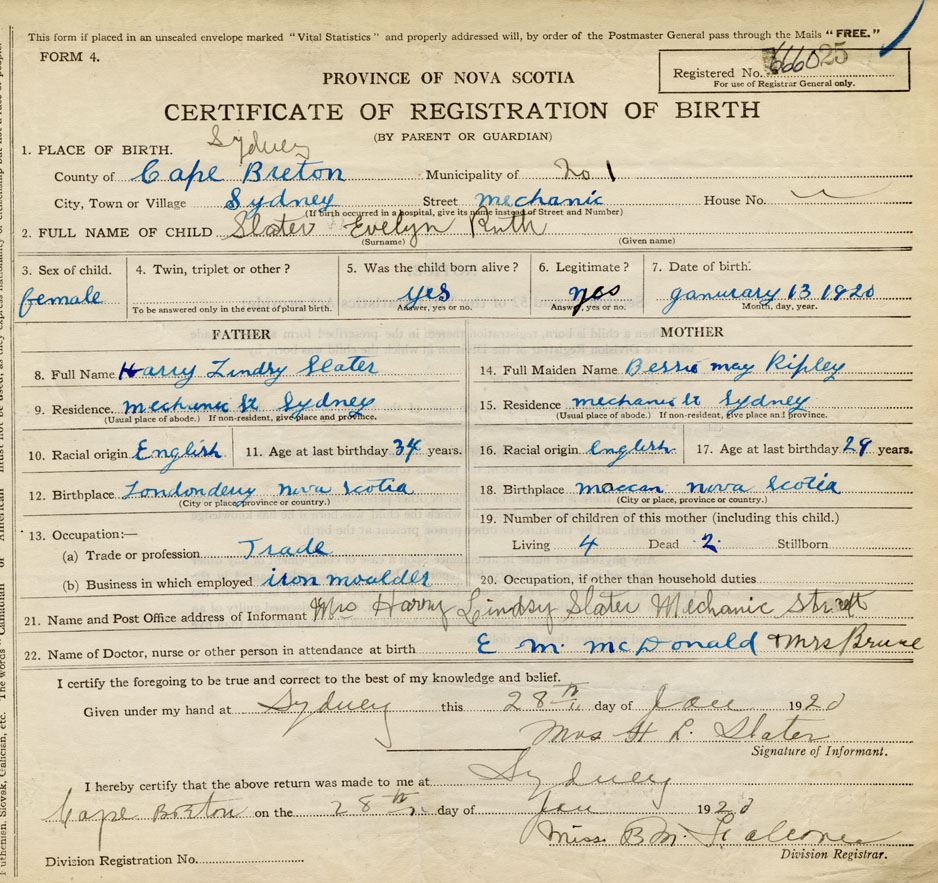 This form if placed in an unsealed envelope marked "Vital Statistics" and properly addressed will, by order of the Postmaster General pass through the Mails "FREE."
FORM 4.
Registered No. 666025
For use of Registrar General only.
PROVINCE OF NOVA SCOTIA
CERTIFICATE OF REGISTRATION OF BIRTH
(BY PARENT OR GUARDIAN)
1. PLACE OF BIRTH. Sydney
County of Cape Breton Municipality of No 1
City, Town or Village Sydney Street Mechanic House No.
(If birth occurred in a hospital, give its name instead of Street and Number)
2. FULL NAME OF CHILD Slater Evelyn Ruth
(Surname) (Given name)
3. Sex of child. 4. Twin, triplet or other? 5. Was the child born alive? 6. Legitimate? 7. Date of birth.
female yes yes January 13 1920
To be answered only in the event of plural birth. Answer, yes or no. Answer, yes or no. Month, day, year.
FATHER MOTHER
8. Full Name Harry Lindsy Slater 14. Full Maiden Name Bessie may Ripley
9. Residence mechanic St Sydney 15. Residence mechanic St Sydney
(Usual place of abode.) If non-resident, give place and province. (Usual place of abode.) If non-resident, give place and province.
10. Racial origin English 11. Age at last birthday 34 years. 16. Racial origin English 17. Age at last birthday 29 years.
12. Birthplace Londondery nova Scotia 18. Birthplace maccan nova Scotia
(City or place, province or country.) (City or place, province or country.)
13. Occupation:— 19. Number of children of this mother (including this child.)
(a) Trade or profession Trade Living 4 Dead 2. Stillborn
(b) Business in which employed iron moulder 20. Occupation, if other than household duties
21. Name and Post Office address of Informant Mrs Harry Lindsy Slater Mechanic Street
22. Name of Doctor, nurse or other person in attendance at birth E m. mcDonald + Mrs Bruce
I certify the foregoing to be true and correct to the best of my knowledge and belief.
Given under my hand at Sydney this 28th day of Jan 1920
Mrs H L. Slater
Signature of Informant.
I hereby certify that the above return was made to me at Sydney
Cape Breton on the 28th day of Jan 1920
Miss. B M. Falconer
Division Registration No. Division Registrar.